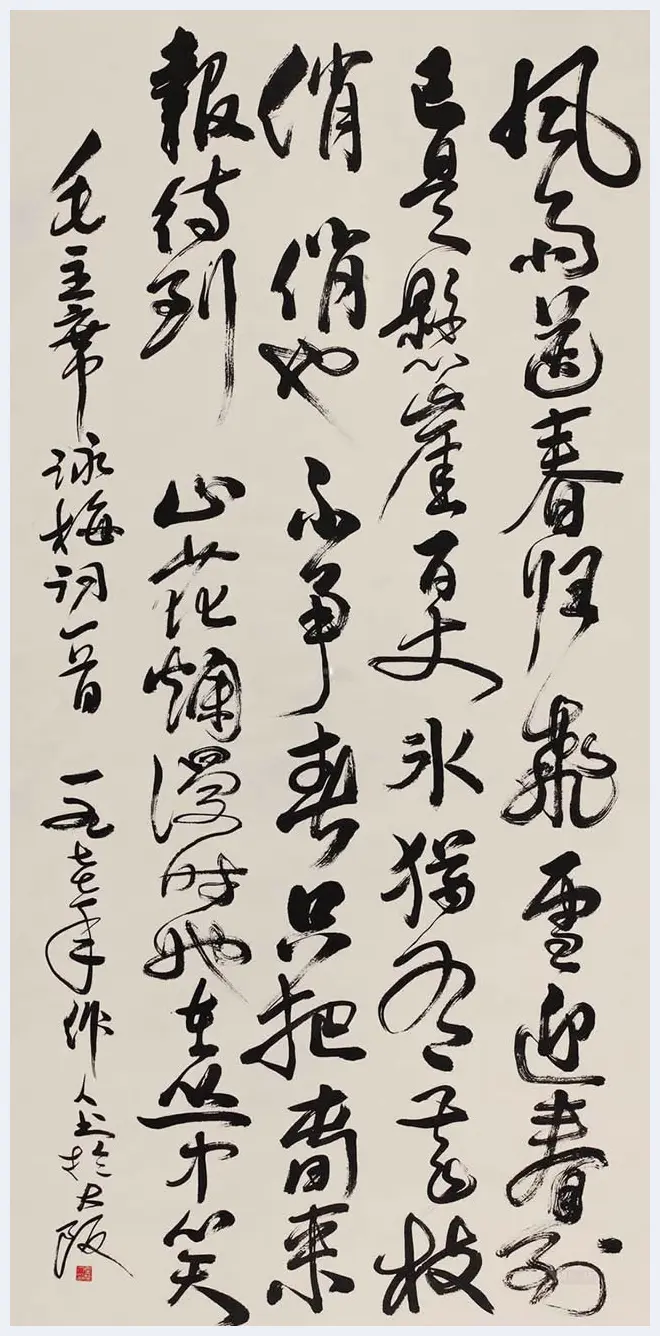 风雨送春归飛雪迎春到
已是懸崖百丈冰猶有花枝
俏俏也不争春只把春来
報待到山花爛漫时她在丛中笑
毛主席詠梅词一首一九七七年作人书於大阪